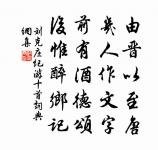 由晋以至唐
几人作文字
前有酒德颂
后惟醉乡记
刘克庄纪游十首词典
网集